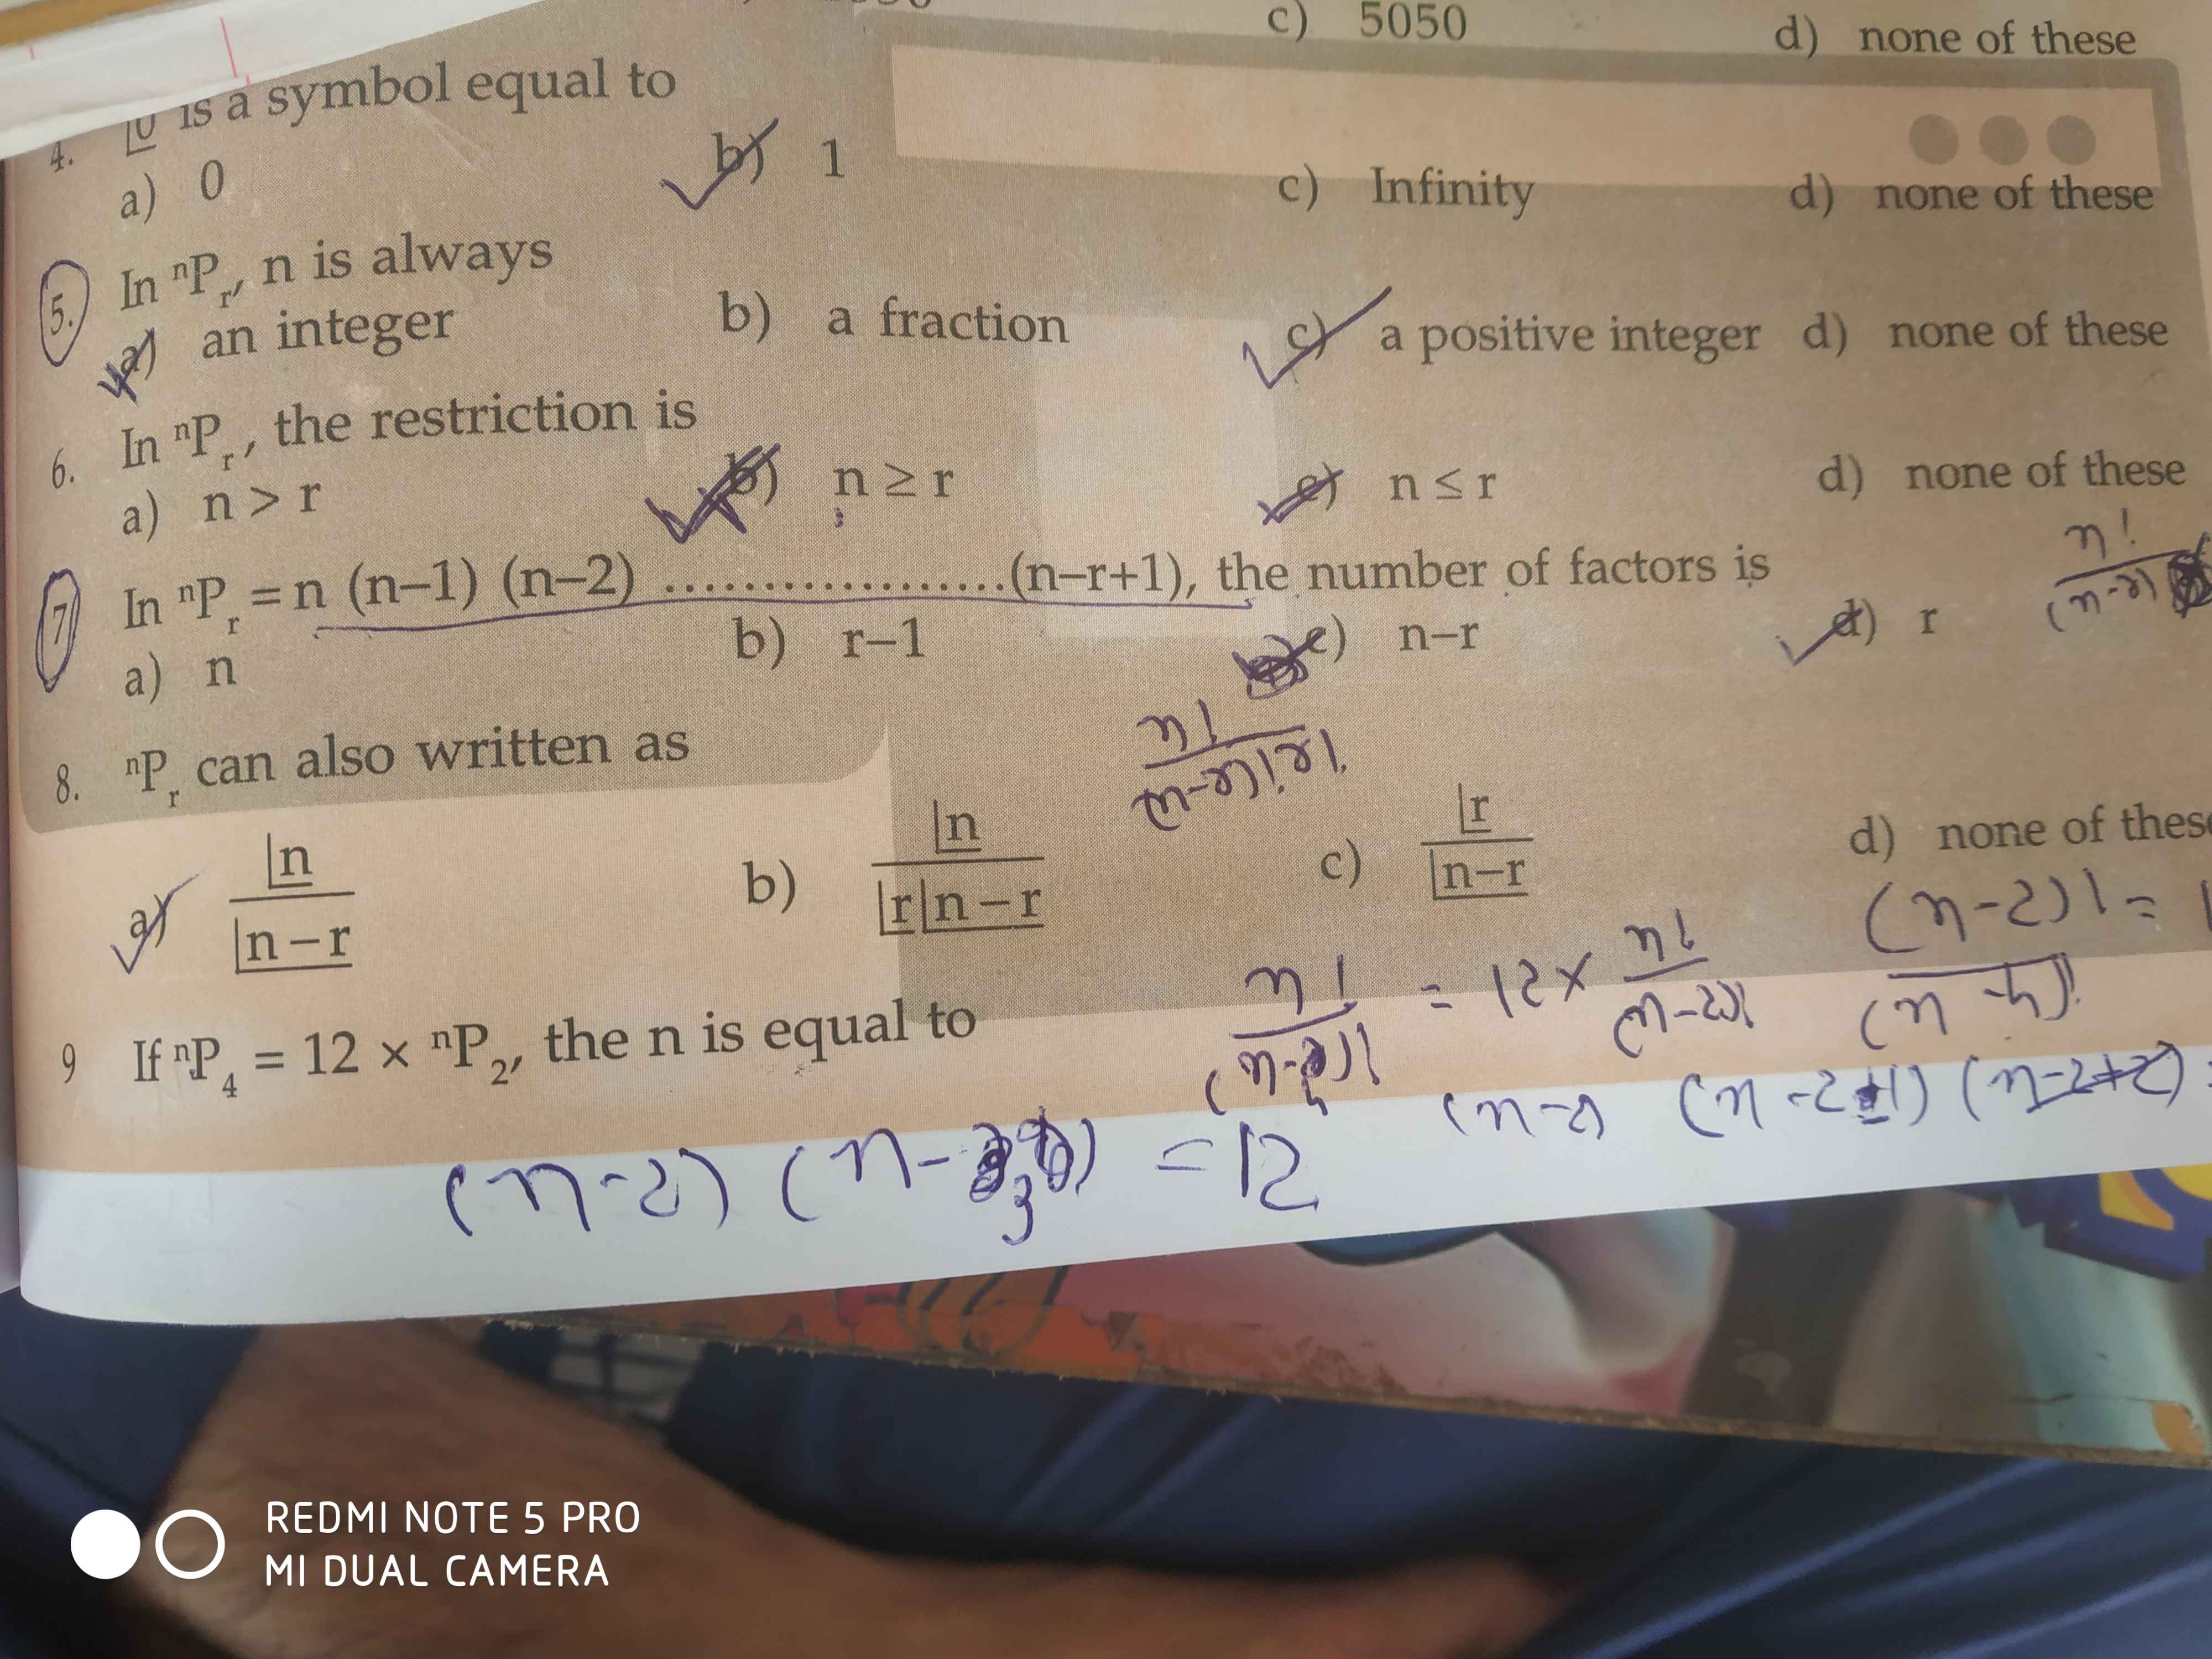 c) 5050 d) none of these
4. |0 is a symbol equal to
a) 0 b) 1 c) Infinity d) none of these
5. In ⁿPᵣ, n is always
a) an integer b) a fraction c) a positive integer d) none of these
6. In ⁿPᵣ, the restriction is
a) n > r b) n ≥ r c) n ≤ r d) none of these
n!
(n-r)
7 In ⁿPᵣ = n (n–1) (n–2) ..................(n–r+1), the number of factors is
a) n b) r–1 c) n–r d) r
n!
(n-r)!r!
8. ⁿPᵣ can also written as
a) |n / |n – r b) |n / |r|n – r c) |r / |n–r d) none of these
n! / (n-4)! = 12 × n! / (n-2)!
(n-2)! = 1
(n-4)!
9 If ⁿP₄ = 12 × ⁿP₂, the n is equal to
(n-2) (n-2+1) (n-2+2) =
(n-2) (n-3) = 12
REDMI NOTE 5 PRO
MI DUAL CAMERA